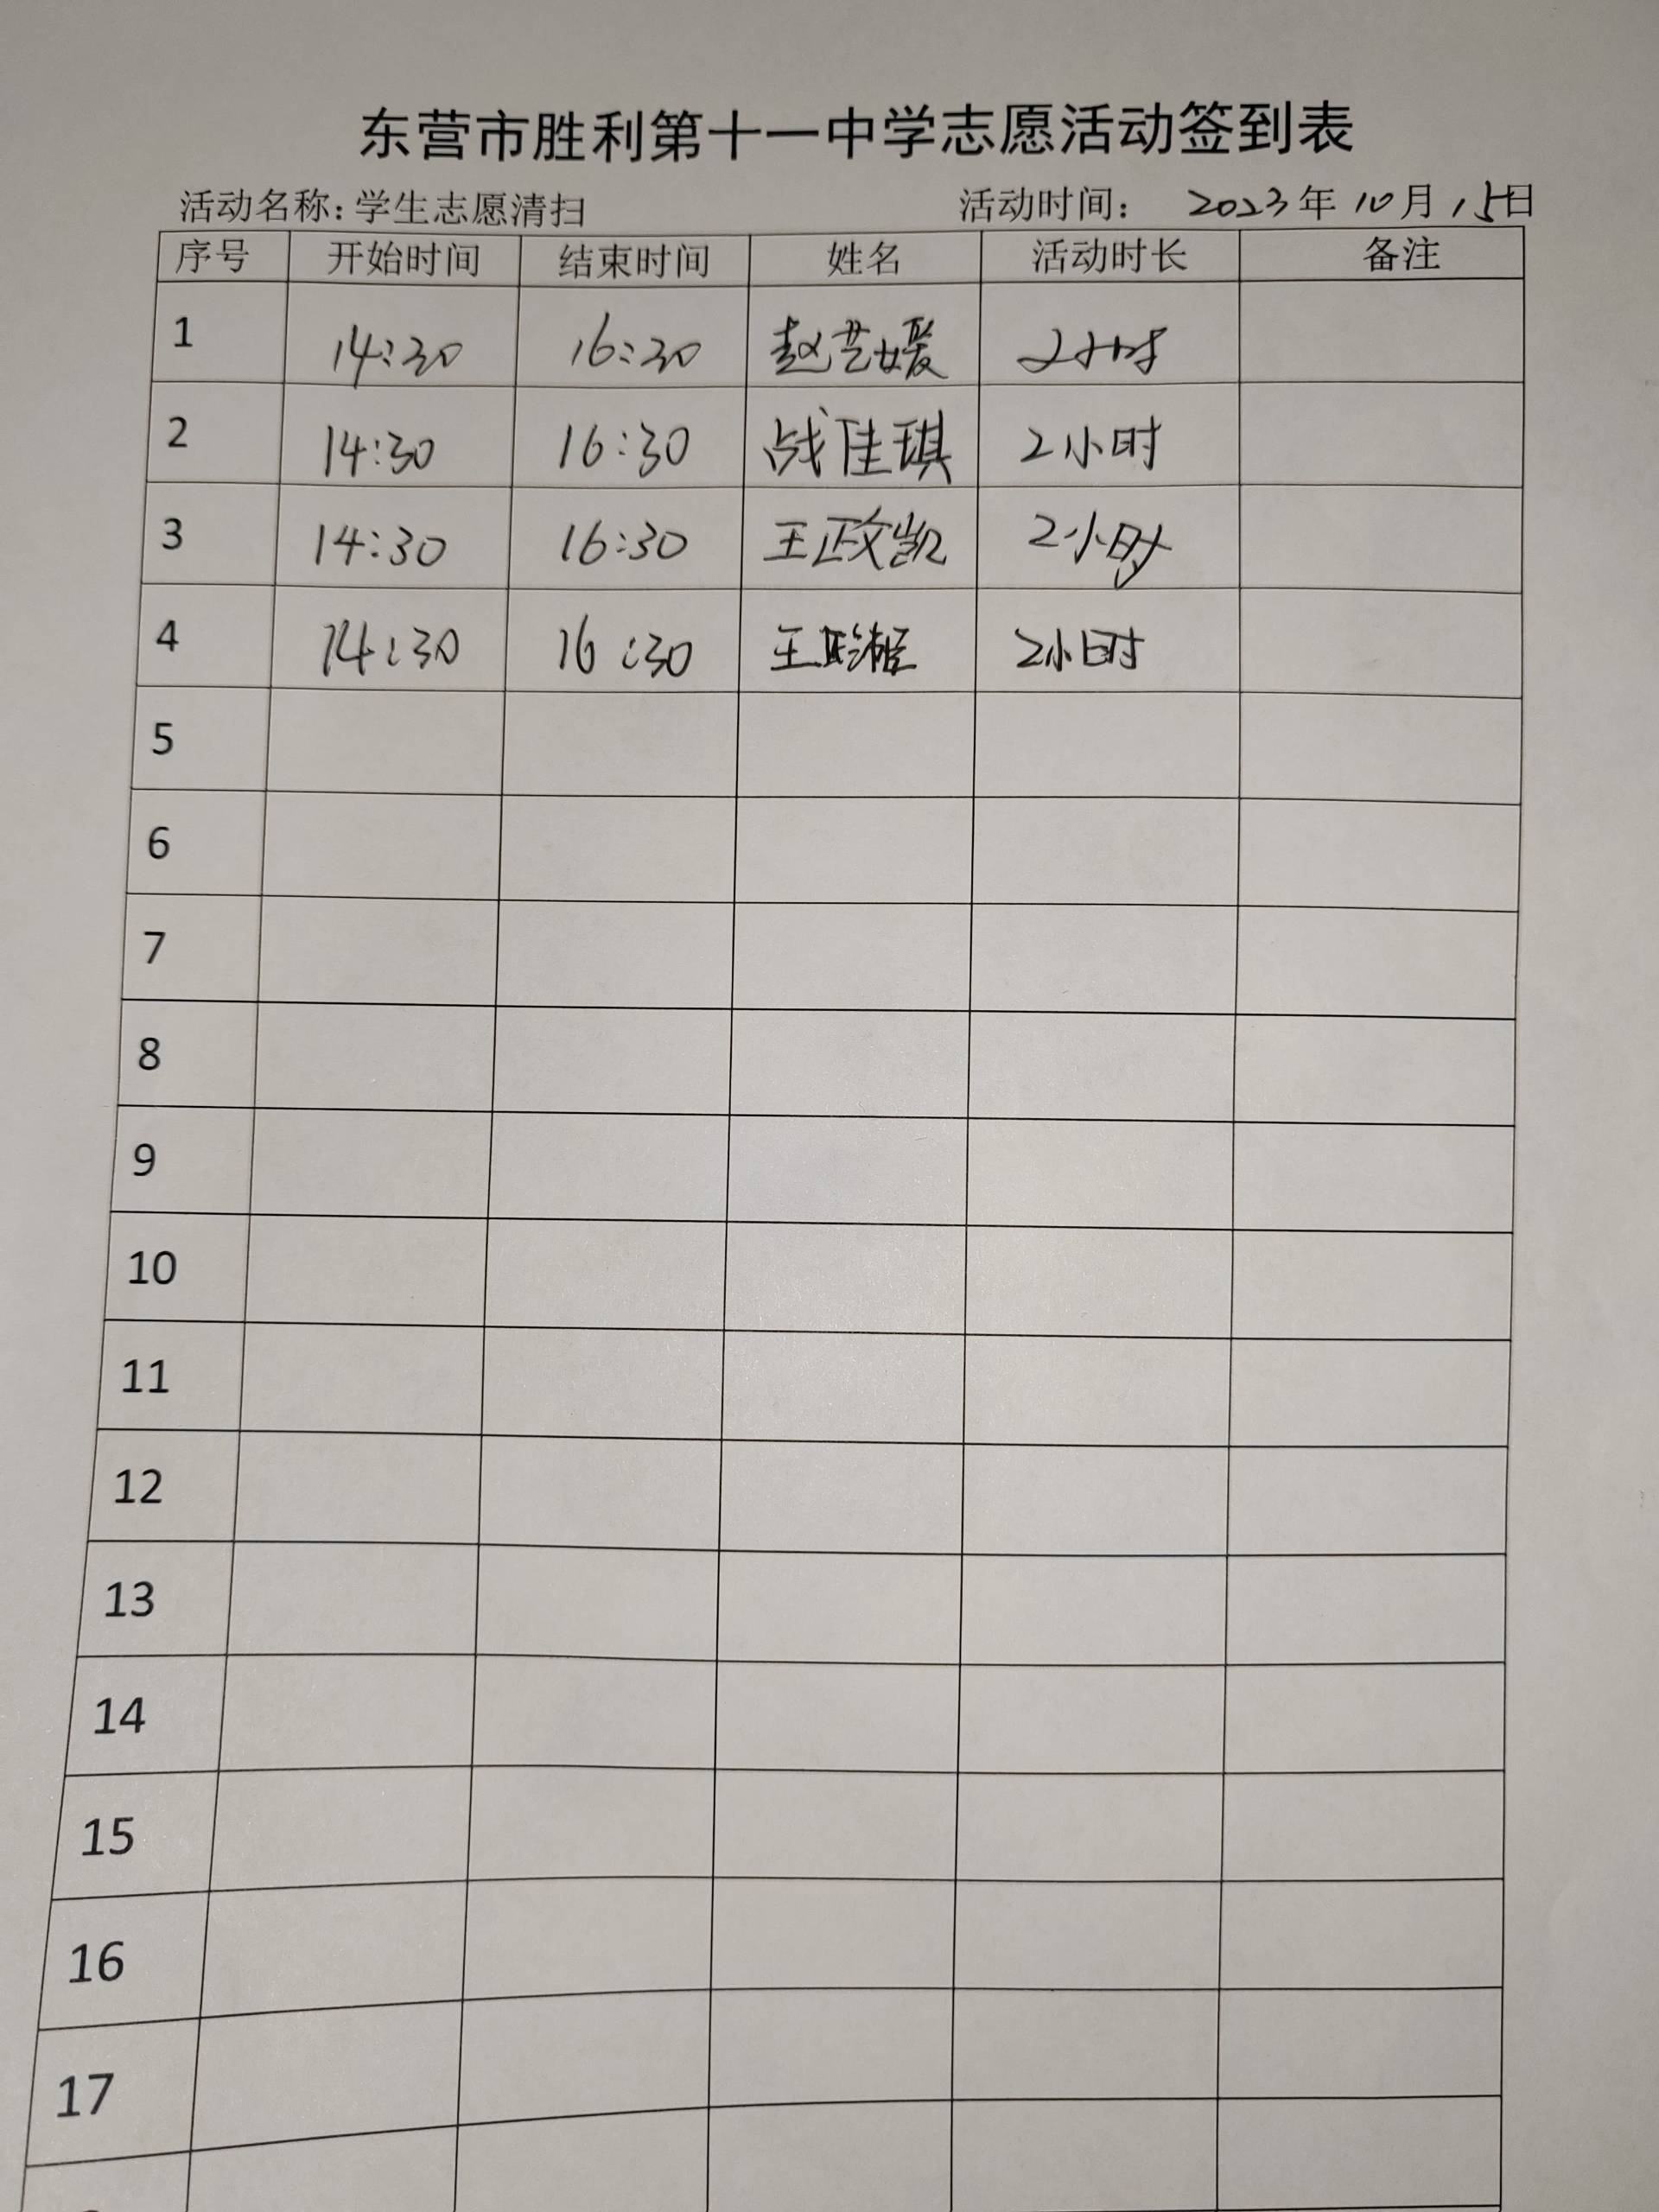 东营市胜利第十一中学志愿活动签到表
活动名称：学生志愿清扫 活动时间： 2023年10月15日
序号 开始时间 结束时间 姓名 活动时长 备注
1 14:30 16:30 赵艺媛 2小时
2 14:30 16:30 战佳琪 2小时
3 14:30 16:30 王政凯 2小时
4 14:30 16:30 王 2小时
5
6
7
8
9
10
11
12
13
14
15
16
17